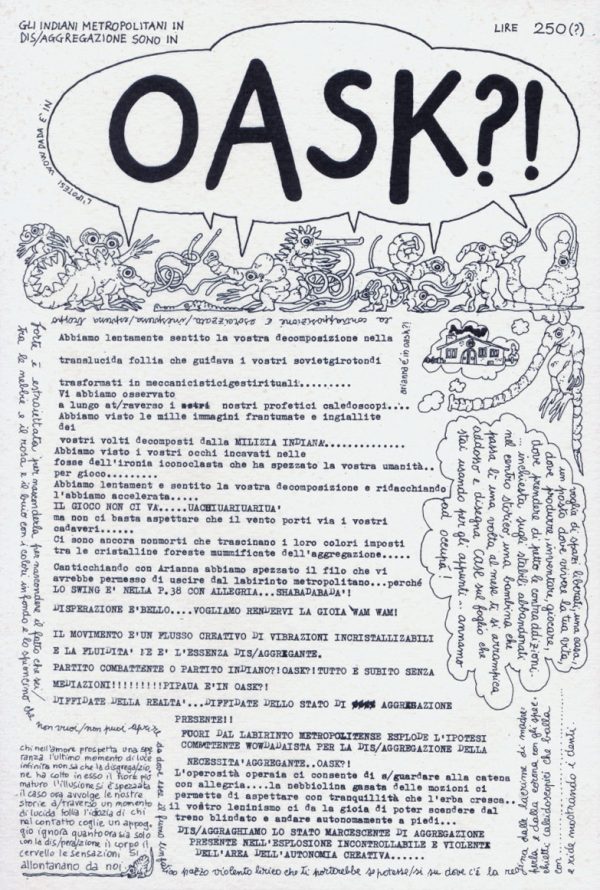 GLI INDIANI METROPOLITANI IN
DIS/AGGREGAZIONE SONO IN
LIRE 250(?)
OASK?!
L'IPOTESI WOW DADA E' IN
la contrapposizione è
arianna è in oask?!
Abbiamo lentamente sentito la vostra decomposizione nella
translucida follia che guidava i vostri sovietgirotondi
trasformati in meccanicisticigestirituali.........
Vi abbiamo osservato
a lungo at/raverso i nostri profetici caledoscopi....
Abbiamo visto le mille immagini frantumate e ingiallite
dei
vostri volti decomposti dalla MILIZIA INDIANA...............
Abbiamo visto i vostri occhi incavati nelle
fosse dell'ironia iconoclasta che ha spezzato la vostra umanità..
per gioco.........
Abbiamo lentament e sentito la vostra decomposizione e ridacchiando
l'abbiamo accelerata.....
IL GIOCO NON CI VA.....UACHIUARIUARIUA'
ma non ci basta aspettare che il vento porti via i vostri
cadaveri.....
Ci sono ancora nonmorti che trascinano i loro colori imposti
tra le cristalline foreste mummificate dell'aggregazione.....
Canticchiando con Arianna abbiamo spezzato il filo che vi
avrebbe permesso di uscire dal labirinto metropolitano...perché
LO SWING E' NELLA P.38 CON ALLEGRIA...SHABADABADA'!
DISPERAZIONE E'BELLO....VOGLIAMO RENDERVI LA GIOIA WAM WAM!
IL MOVIMENTO E'UN FLUSSO CREATIVO DI VIBRAZIONI INCRISTALLIZABILI
E LA FLUIDITA' NE E' L'ESSENZA DIS/AGGREGANTE.
PARTITO COMBATTENTE O PARTITO INDIANO?!OASK?!TUTTO E SUBITO SENZA
MEDIAZIONI!!!!!!!!PIPAUA E'IN OASK?!
DIFFIDATE DELLA REALTA'...DIFFIDATE DELLO STATO DI AGGREGAZIONE
PRESENTE!!
FUORI DAL LABIRINTO METROPOLITENSE ESPLODE L'IPOTESI
COMBTTENTE WOWDADAISTA PER LA DIS/AGGREGAZIONE DELLA
NECESSITA'AGGREGANTE..OASK?!
L'operosità operaia ci consente di s/guardare alla catena
con allegria....la nebbiolina gasata delle mozioni ci
permette di aspettare con tranquillità che l'erba cresca..
il vostro leninismo ci da la gioia di poter scendere dal
treno blindato e andare autonomamente a piedi...
DIS/AGGRAGHIAMO LO STATO MARSCESCENTE DI AGGREGAZIONE
PRESENTE NELL'ESPLOSIONE INCONTROLLABILE E VIOLENTE
DELL'AREA DELL'AUTONOMIA CREATIVA......
voglia di spazi liberati, una casa,
un posto dove vivere la tua vita,
dove produrre invenzioni, giocare,
dove prendere di petto le contraddizioni.
... inchiesta sugli stabili abbandonati
nel centro storico: una bambina che
passa lì una volta al mese ti si arrampica
addosso e disegna case sul foglio che
stai usando per gli appunti... annamo
ad occupà!
Forte è estrovertita per nasconderla per nascondere il fatto che sei/
tra le nebbie e il rosa e il buio con i colori in fondo e lo spuncino che
non vuoi/non puoi
chi nell'amore prospetta una spe
ranza l'ultimo momento di luce
infinita non sa che la disgregazio
ne ha colto in esso il fiore più
maturo l'illusione si è spezzata
il caso ora avvolge le nostre
storie a/traverso un momento
di lucida follia l'idozia di chi
nel contatto coglie un appog
gio ignora quanto ora sia solo
con la dis/perazione il corpo il
cervello le sensazioni si
allontanano da noi
pazzo violento lirico che ti porterebbe
e ride mostrando i denti